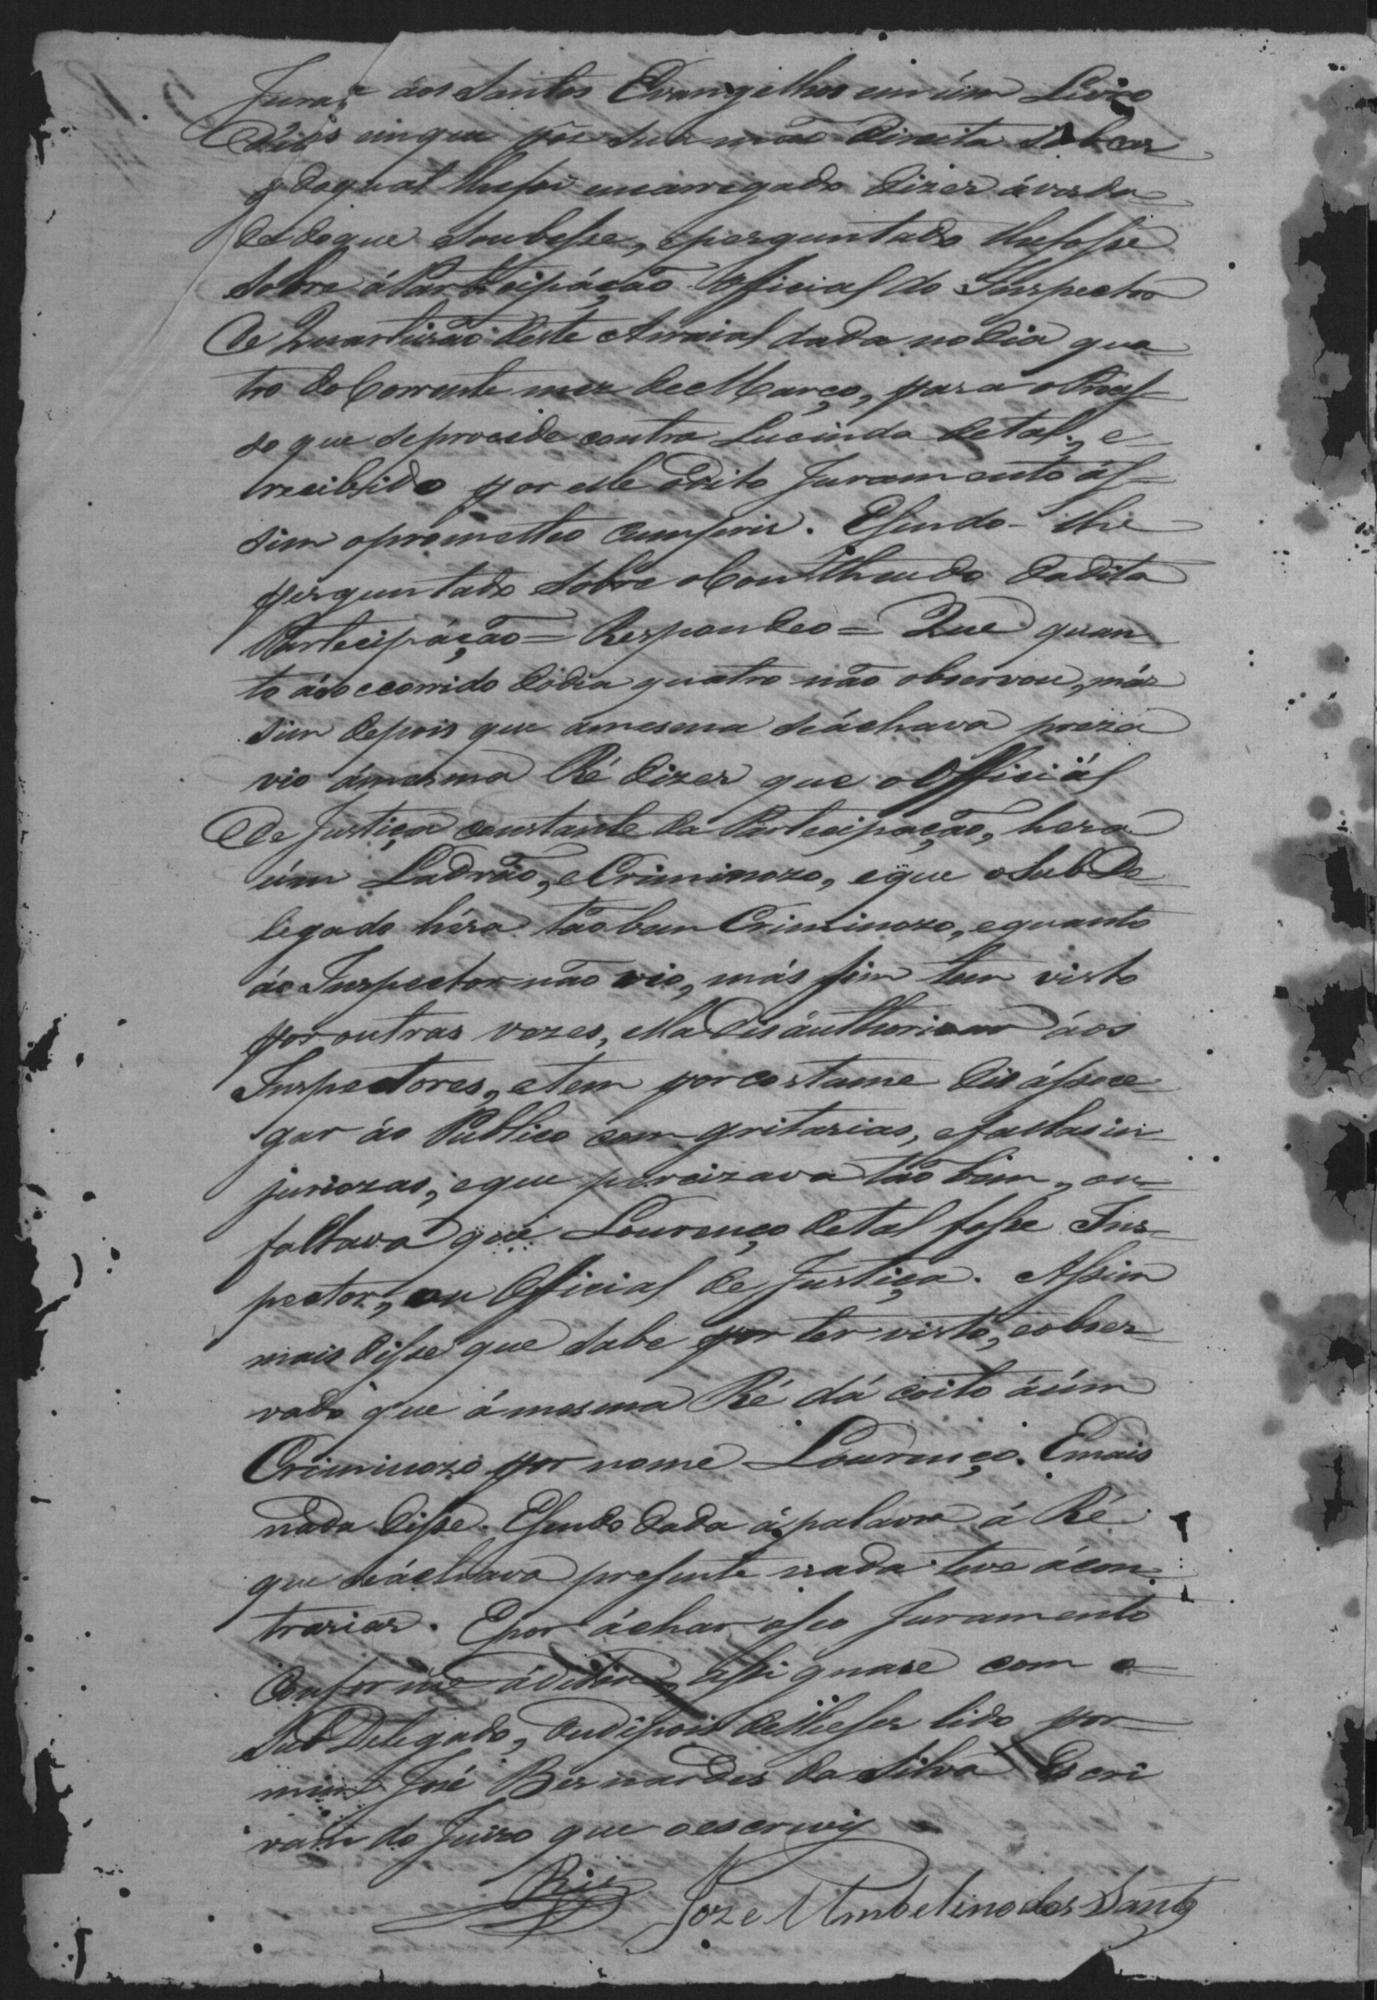 Jura aos Santos Evangelhos em úm Livro
em que pôz sua mão direita
doqual lhefoi encarregado dizer áverda-
de doque Soubesse, eperguntado lhefosse
Sobre áParticipáção Official do Inspector
de Quarteirão deste Arraial dada nodia qua
tro do Corrente mez de Março, para oProces-
so que seprocede contra Lucinda detal, e
recebido por elle dito Juramento ás-
sim oprometteo cumprir. Esendo-lhe
perguntado Sobre oConthendo dadita
Partecipáção = Respondeo = Que quan
to áooccorrido dodia quatro não observou, más
sim depois que ámesma seáchava preza
vio ámesma Ré dizer que oOfficiál
de Justiça constante da Partecipação, hera
úm Ladrão, eCriminozo, eque oSubDe-
legado héra tãobem Criminozo, equanto
áo Inspector não vio, más sim tem visto
por outras vezes, ella disáuthorizar áos
Inspectores, etem porcostume disássoce
gar áo Publico com gritarias, efallasin-
juriozas, eque percizava tãobem, ou
faltava que Lourenço detal fosse Ins-
pector, ou Official de Justiça. Assim
mais disse que sabe por ter visto, eobser-
vado que ámesma Ré dá coito áúm
Criminozo por nome Lourenço. Emais
nada disse. Esendo dada ápalavra á Ré
que seáchava presente nada teve ácon-
trariar. Epor áchar oseo Juramento
Conforme assignase com o
SubDelegado, dudipois delheser lido por
mim José Bernardes da Silva Escri
vam do Juizo que oescrevy
Joze Umbelino dos Santos